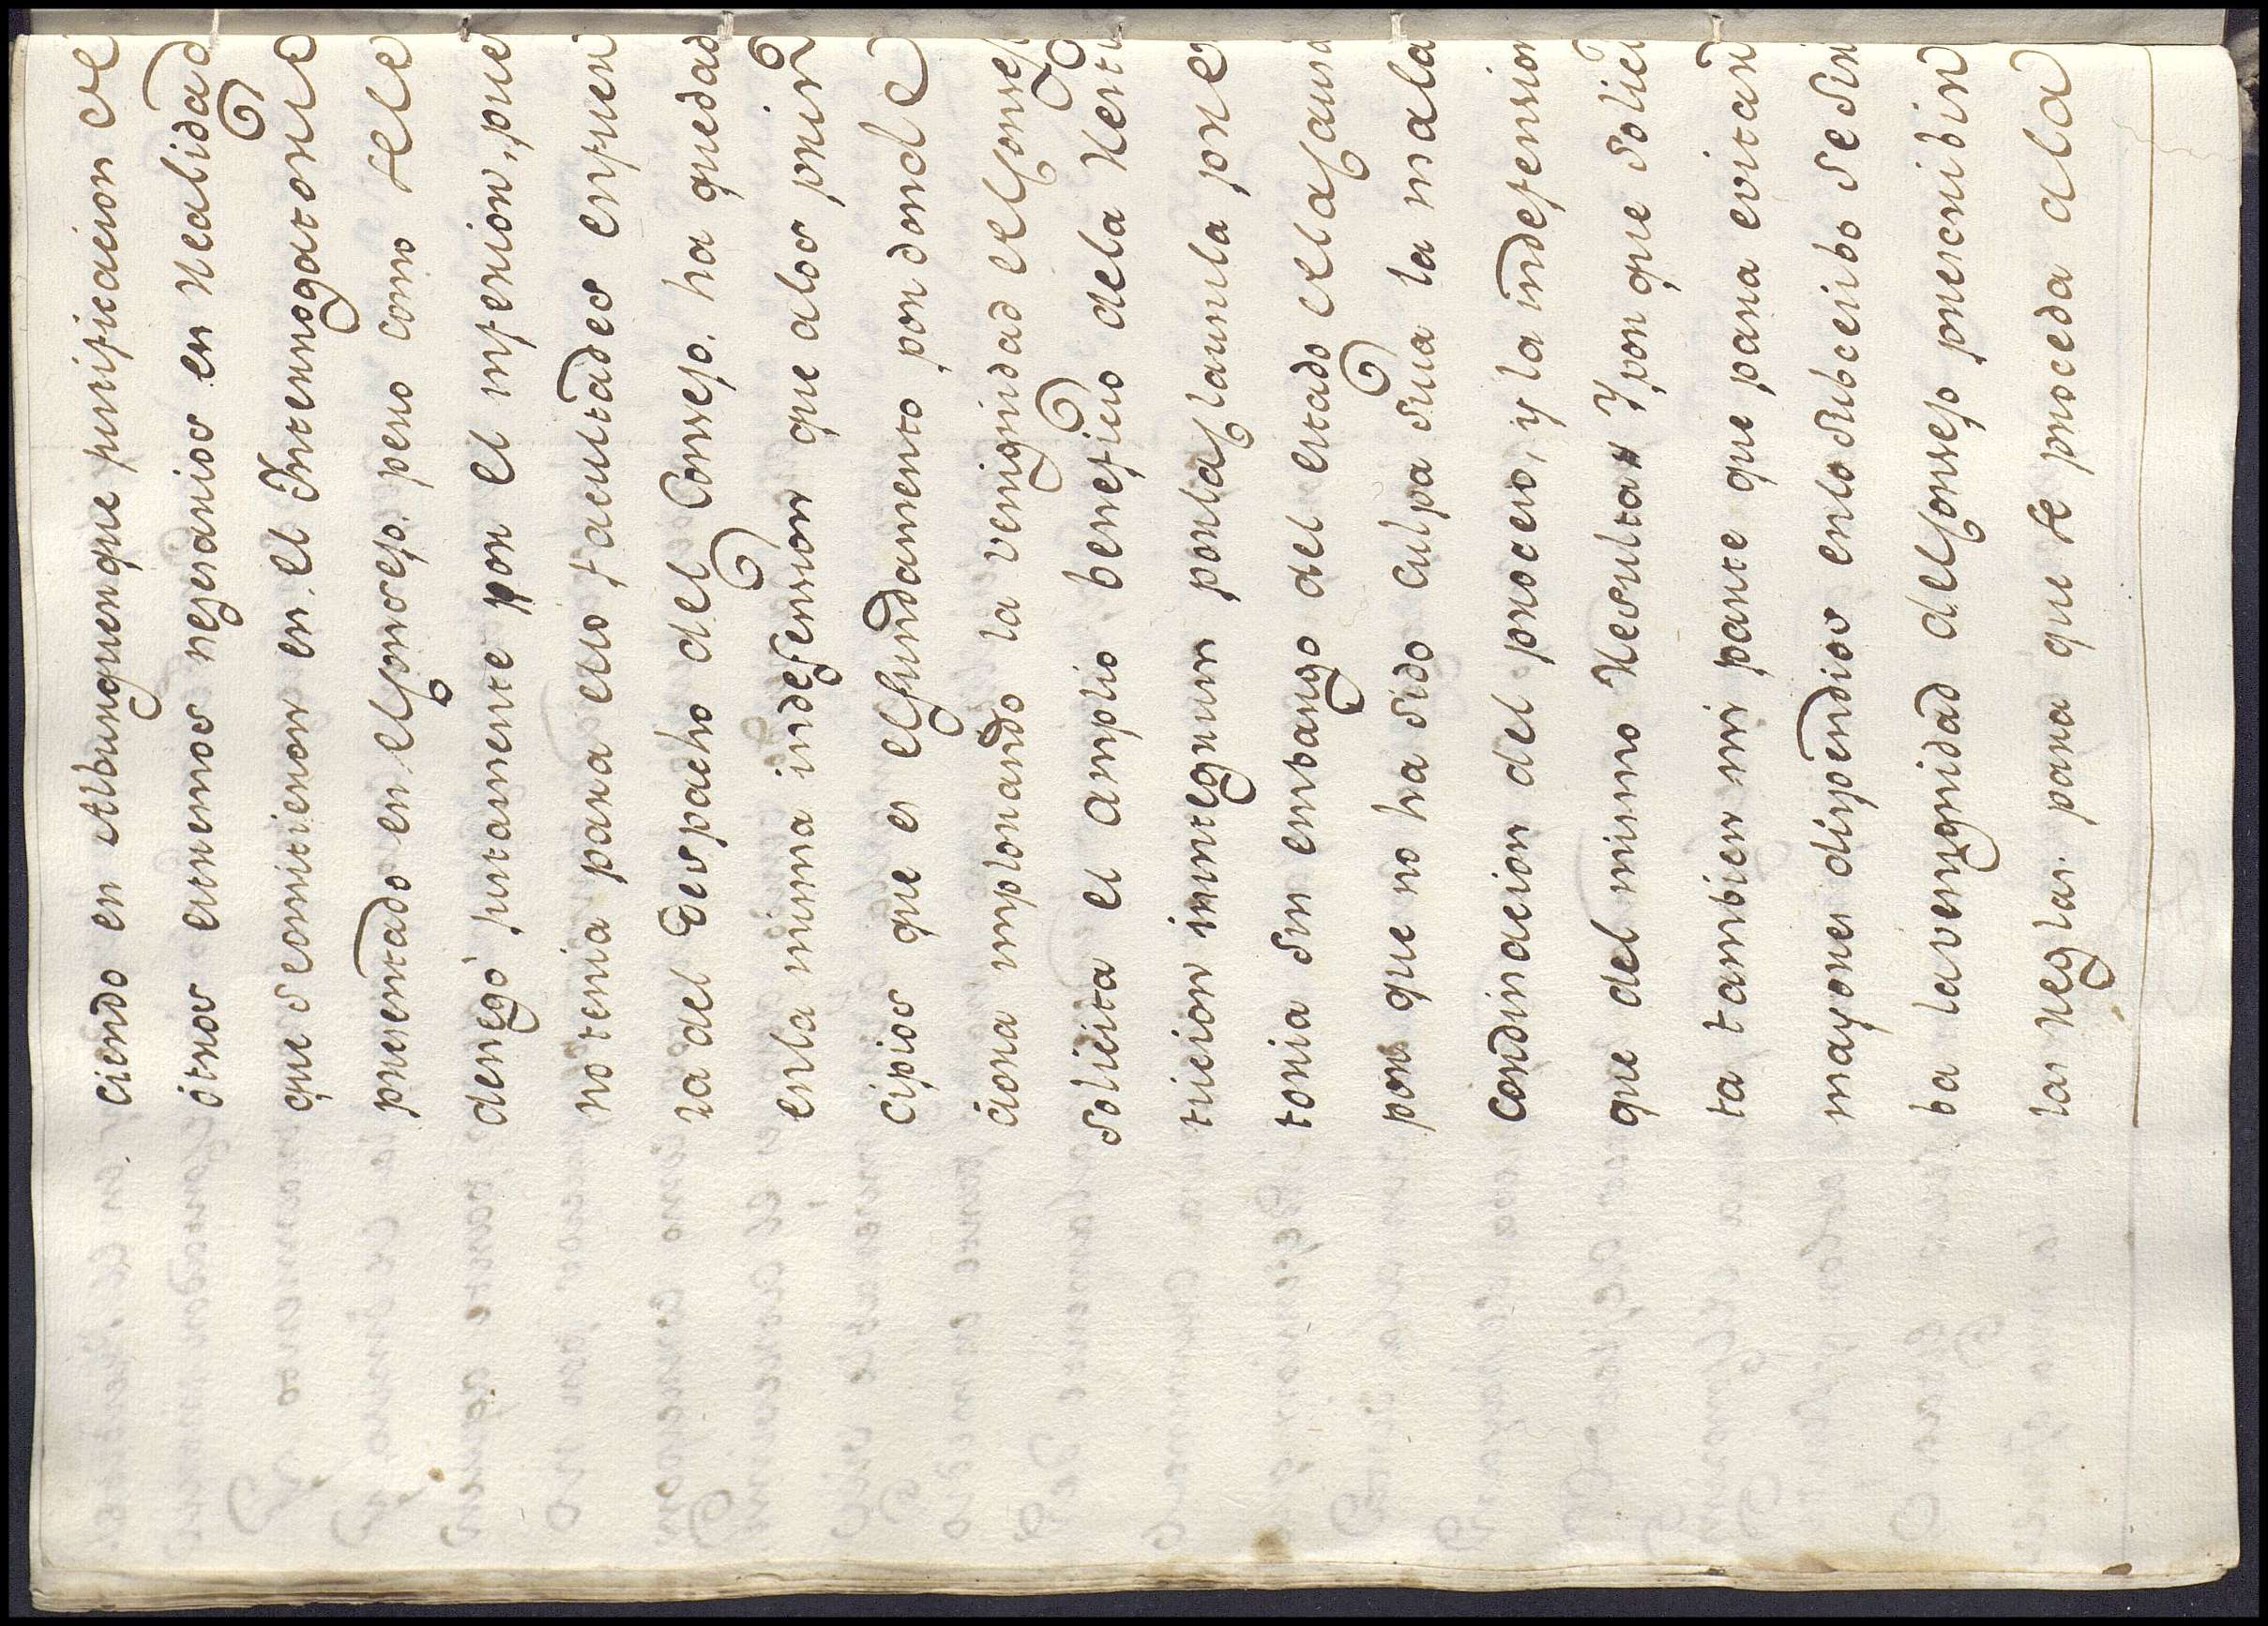 ciendo en Alburquerque purificacion de
otros extremos nesesarios en Realidad
que se omitieron en el Interrogatorio
presentado en el Consejo. pero como se le
denegò justamente por el inferior, pues
no tenia para ello facultades en fuer
za del Despacho del Consejo. ha quedad
en la misma indefension que a los prin
cipios que es el fundamento por donde
aora implorando la venignidad del Consej
solicita el amplio beneficio dela Resti
tucion inintegrum por la Clausula pre
toria sin embargo del estado de la Causa
por que no ha sido culpa suia la mala
cordinacion del proceso, y la indefension
que del mismo Resulta. Y por que solici
ta tambien mi parte que para evitar
mayores dispendios en lo subcecibo se sir
ba la venignidad del Consejo prescribir
las reglas. para que se proceda a la